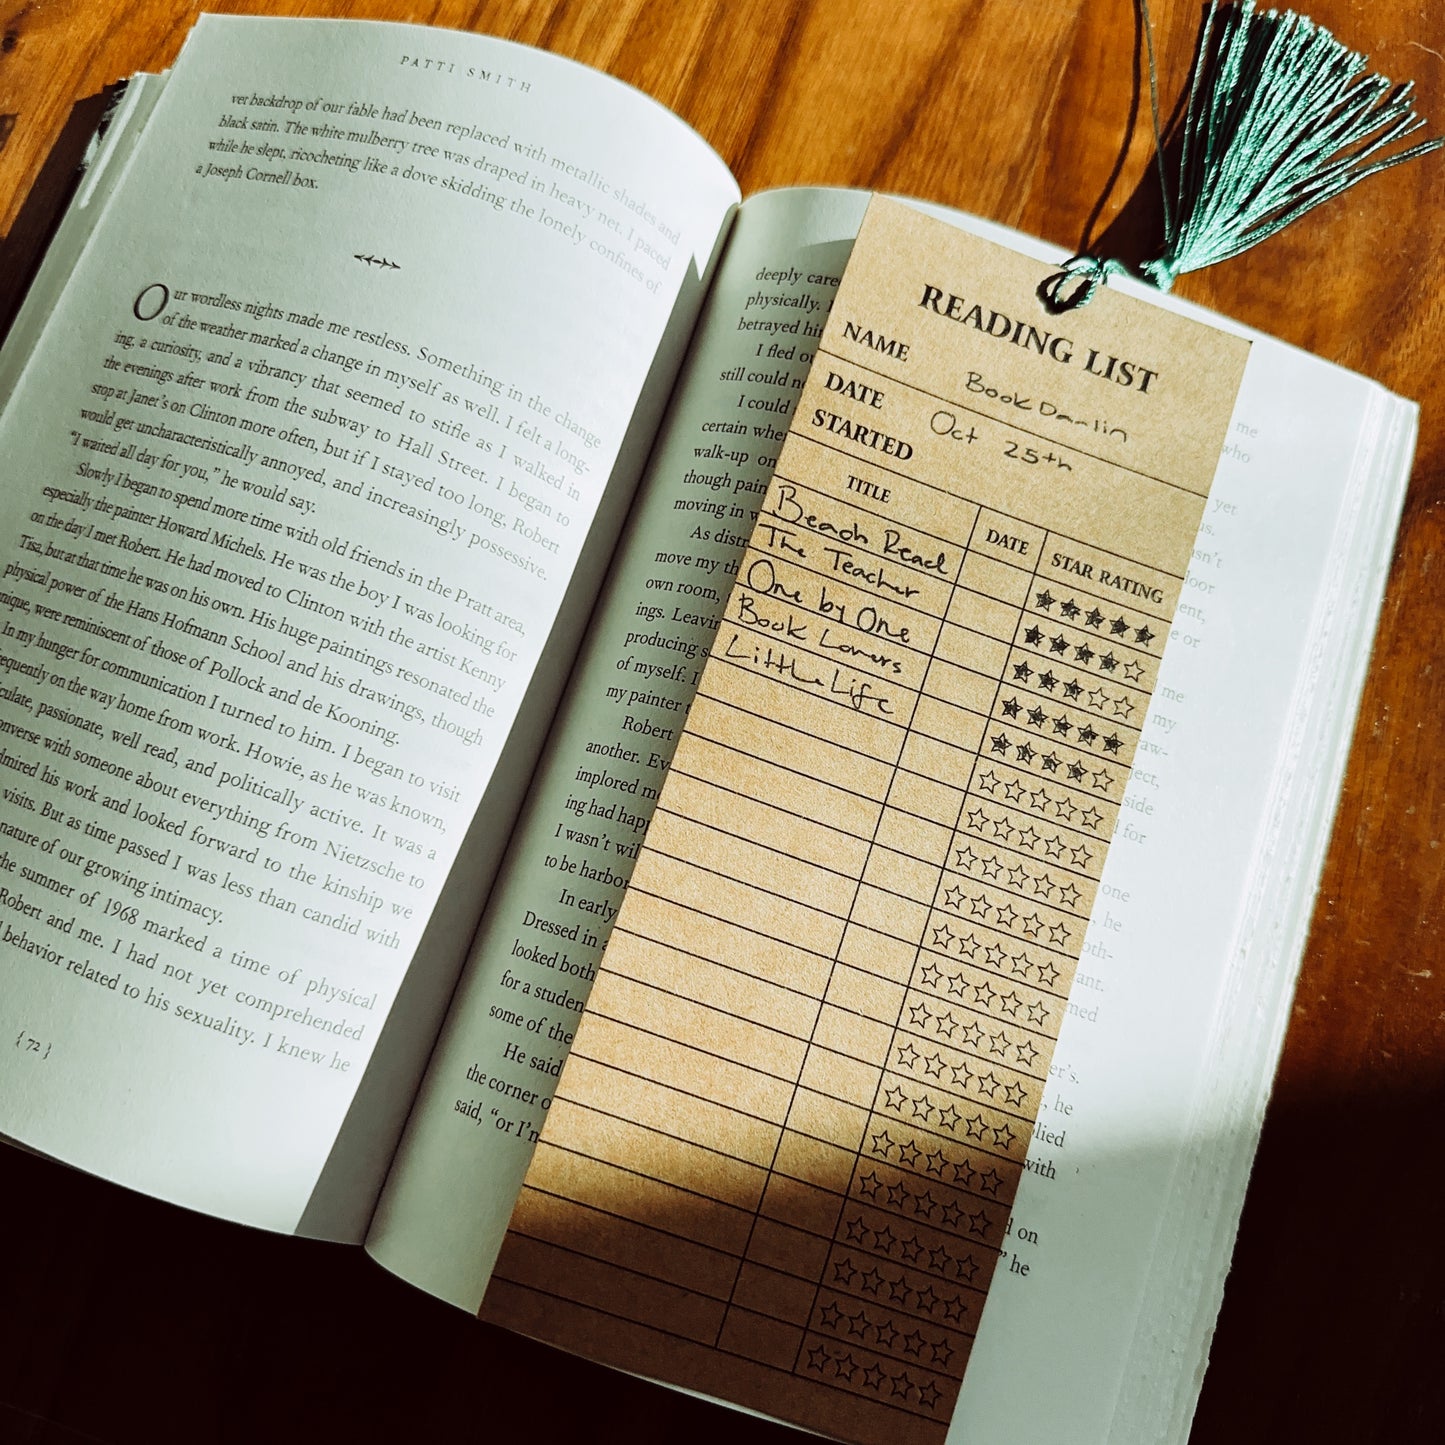 PATTI SMITH
vet backdrop of our fable had been replaced with metallic shades and
black satin. The white mulberry tree was draped in heavy net. I paced
while he slept, ricocheting like a dove skidding the lonely confines of
a Joseph Cornell box.
Our wordless nights made me restless. Something in the change
of the weather marked a change in myself as well. I felt a long-
ing, a curiosity, and a vibrancy that seemed to stifle as I walked in
the evenings after work from the subway to Hall Street. I began to
stop at Janet's on Clinton more often, but if I stayed too long, Robert
would get uncharacteristically annoyed, and increasingly possessive.
"I waited all day for you," he would say.
Slowly I began to spend more time with old friends in the Pratt area,
especially the painter Howard Michels. He was the boy I was looking for
on the day I met Robert. He had moved to Clinton with the artist Kenny
Tisa, but at that time he was on his own. His huge paintings resonated the
physical power of the Hans Hofmann School and his drawings, though
nique, were reminiscent of those of Pollock and de Kooning.
In my hunger for communication I turned to him. I began to visit
equently on the way home from work. Howie, as he was known,
culate, passionate, well read, and politically active. It was a
onverse with someone about everything from Nietzsche to
dmired his work and looked forward to the kinship we
visits. But as time passed I was less than candid with
nature of our growing intimacy.
the summer of 1968 marked a time of physical
Robert and me. I had not yet comprehended
behavior related to his sexuality. I knew he
{ 72 }
deeply care
physically.
betrayed hi
I fled o
still could n
I could
certain whe
walk-up on
though pain
moving in w
As distr
move my th
own room,
ings. Leavin
producing s
of myself. I
my painter
Robert
another. Ev
implored m
ing had hap
I wasn't wil
to be harbor
In early
Dressed in a
looked both
for a studen
some of the
He said
the corner o
said, "or I'm
READING LIST
NAME Book Darlin
DATE STARTED Oct 25th
TITLE DATE STAR RATING
Beach Read
The Teacher
One by One
Book Lovers
Little Life
me
who
yet
us.
asn't
loor
ent,
e or
me
my
raw-
ject,
side
for
one
, he
oth-
ant.
med
er's.
, he
lied
with
d on
" he